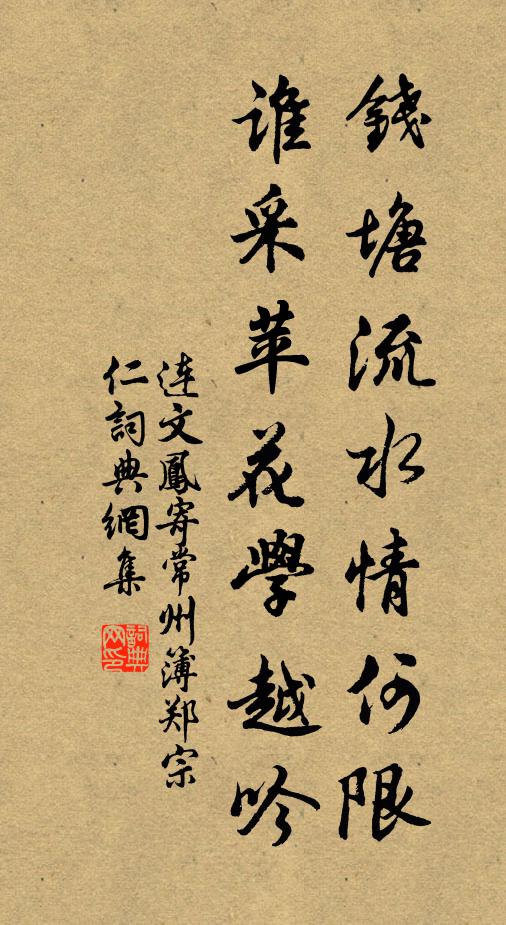 錢塘流水情何限
誰采苹花學越吟
连文鳳寄常州簿郑宗
仁詞典網集
詞典
网印